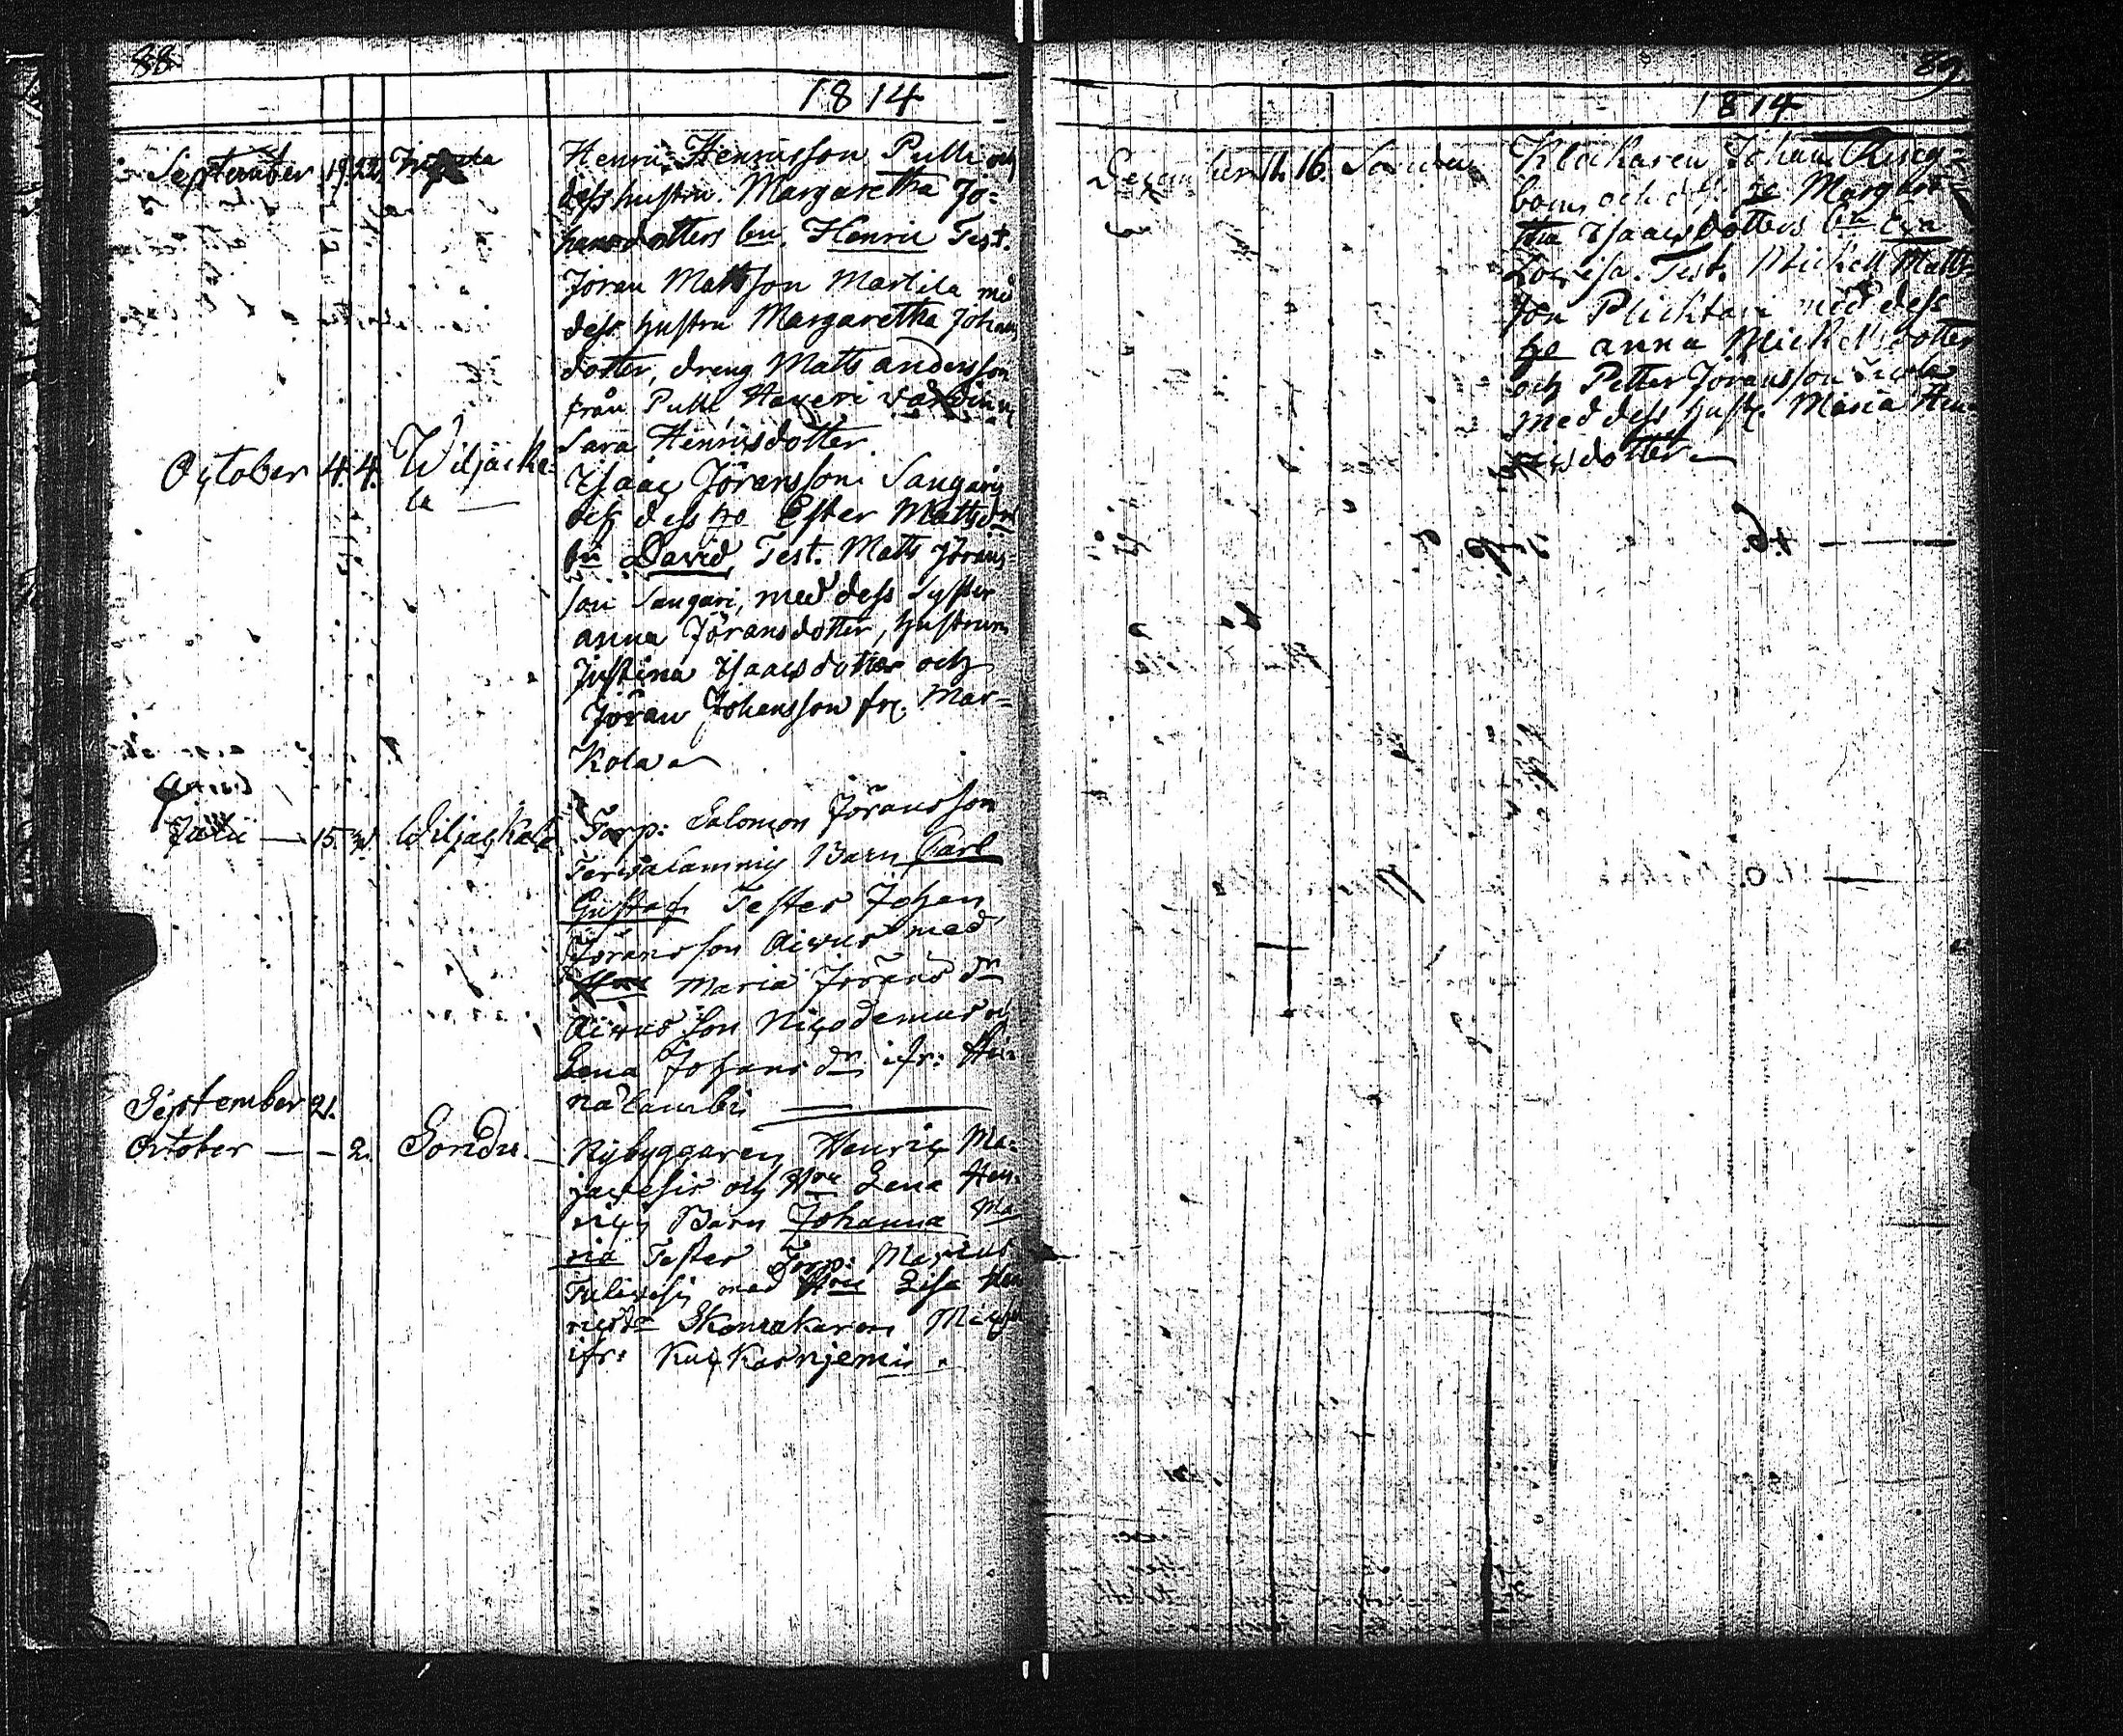 88
1814
September 19. 22.
Henric Henricsson Pulli och
dess hustru Margaretha Jo=
hansdotters bn. Henric Test.
Jöran Mattsson Martila med
dess hustru Margaretha Johans
dotter, dreng Matts andersson
från Pulli Haveri värdinn
Sara Henricsdotter.
October 4. 4. Wiljacka=
la
Isaac Jöransson Sangari
och dess ho Ester Mattsdr
bn David, Test. Matts Jörans=
son Sangari, med dess Syster
anna Jöransdotter, hustrun
Justina Isaacsdotter och
Jöran Johansson fr. Mar=
kola
Julii — 15. Wiljackala
Torp: Salomon Jöransson
Terwalammis Barn Carl
Gustaf Testes Johan
Jöransson Airus med
Maria Jörans dr
Airus Son Nicodemus och
Lena Johans dr ifr: Hei=
nälambi
September 21.
October — — 2. Sondu. —
Nybyggaren Henric Ma=
javesis och Hou Lena Hen=
rics Barn Johanna Ma
ria Testes Torp: Marcus
Tulivesi med Hou Lisa Hen
ricsdr Skomakaren Michel
ifr: Kuckasnjemis.
89
1814
December 11. 16. Sondu
Klockaren Johan Ring=
boms och dess ho Margare
tha Isaacsdotters bn Eva
Lovisa. Test. Michell Matts
son Plichtari med dess
ho anna Michellsdotter
och Petter Jöransson
med dess hust. Maria Hen=
ricsdotter